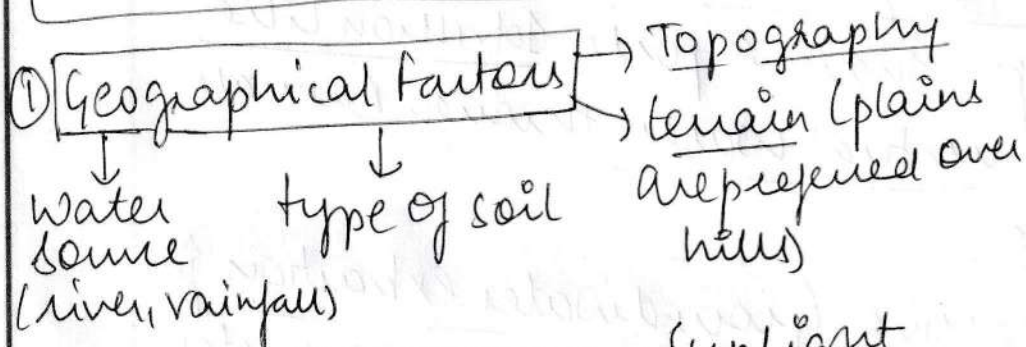 ① Geographical Factors → Topography
→ terrain (plains
are preferred over
hills)
↓ water
source
(river, rainfall)
↓ type of soil
sunlight